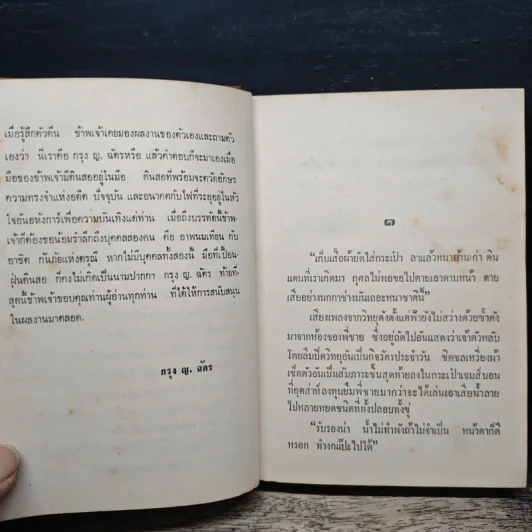 เมื่อรู้สึกตัวตื่น ข้าพเจ้าเคยมองผลงานของตัวเองและถามตัว
เองว่า นี่เราคือ กรุง ญ. ฉัตรหรือ แล้วคำตอบก็จะมาเองเมื่อ
มือของข้าพเจ้ามีดินสออยู่ในมือ ดินสอที่พร้อมจะตวัดอักษร
ความทรงจำแห่งอดีต ปัจจุบัน และอนาคตกับไฟที่ระอุอยู่ในหัว
ใจอันอหังการ์เพื่อความบันเทิงแด่ท่าน เมื่อถึงบรรทัดนี้ข้าพ
เจ้าก็ต้องขอน้อมรำลึกถึงบุคคลสองคน คือ อาพนมเทียน กับ
อาชิต กันภัยแห่งดรุณี หากไม่มีบุคคลทั้งสองนี้ มือที่เปื้อน
ฝุ่นดินสอ ก็คงไม่เกิดเป็นนามปากกา กรุง ญ. ฉัตร ท้ายที่
สุดนี้ข้าพเจ้าขอบคุณท่านผู้อ่านทุกท่าน ที่ได้ให้การสนับสนุน
ในผลงานมาตลอด.
กรุง ญ. ฉัตร
๑
"เก็บเสื้อผ้ายัดใส่กระเป๋า ลาแล้วหนาบ้านเก่า ดิน
แดนที่เราเกิดมา กุศลไม่พอขอไปตายเอาดาบหน้า ตาย
เสียอย่างนกกาช่างมันเถอะหนาชาตินี้"
เสียงเพลงจากวิทยุดังตั้งแต่ฟ้ายังไม่สว่างด้วยซ้ำดัง
มาจากห้องของพี่ชาย ซึ่งอยู่ถัดไปอันแสดงว่าเจ้าตัวหลับ
โดยลืมปิดวิทยุอันเป็นกิจวัตรประจำวัน ชิดชลเหวี่ยงผ้า
เช็ดตัวอันเป็นสัมภาระชิ้นสุดท้ายลงในกระเป๋าจมส์บอน
ที่อุตส่าห์ลงทุนยืมพี่ชายมากว่าจะได้เล่นเอาเสียน้ำลาย
ไปหลายหยดชนิดที่ทั้งปลอบทั้งขู่
"รับรองน่า น้ำไม่ทำพังถ้าไม่จำเป็น หน้าตาก็ดี
หรอก ทำงกแป๊ะไปได้"